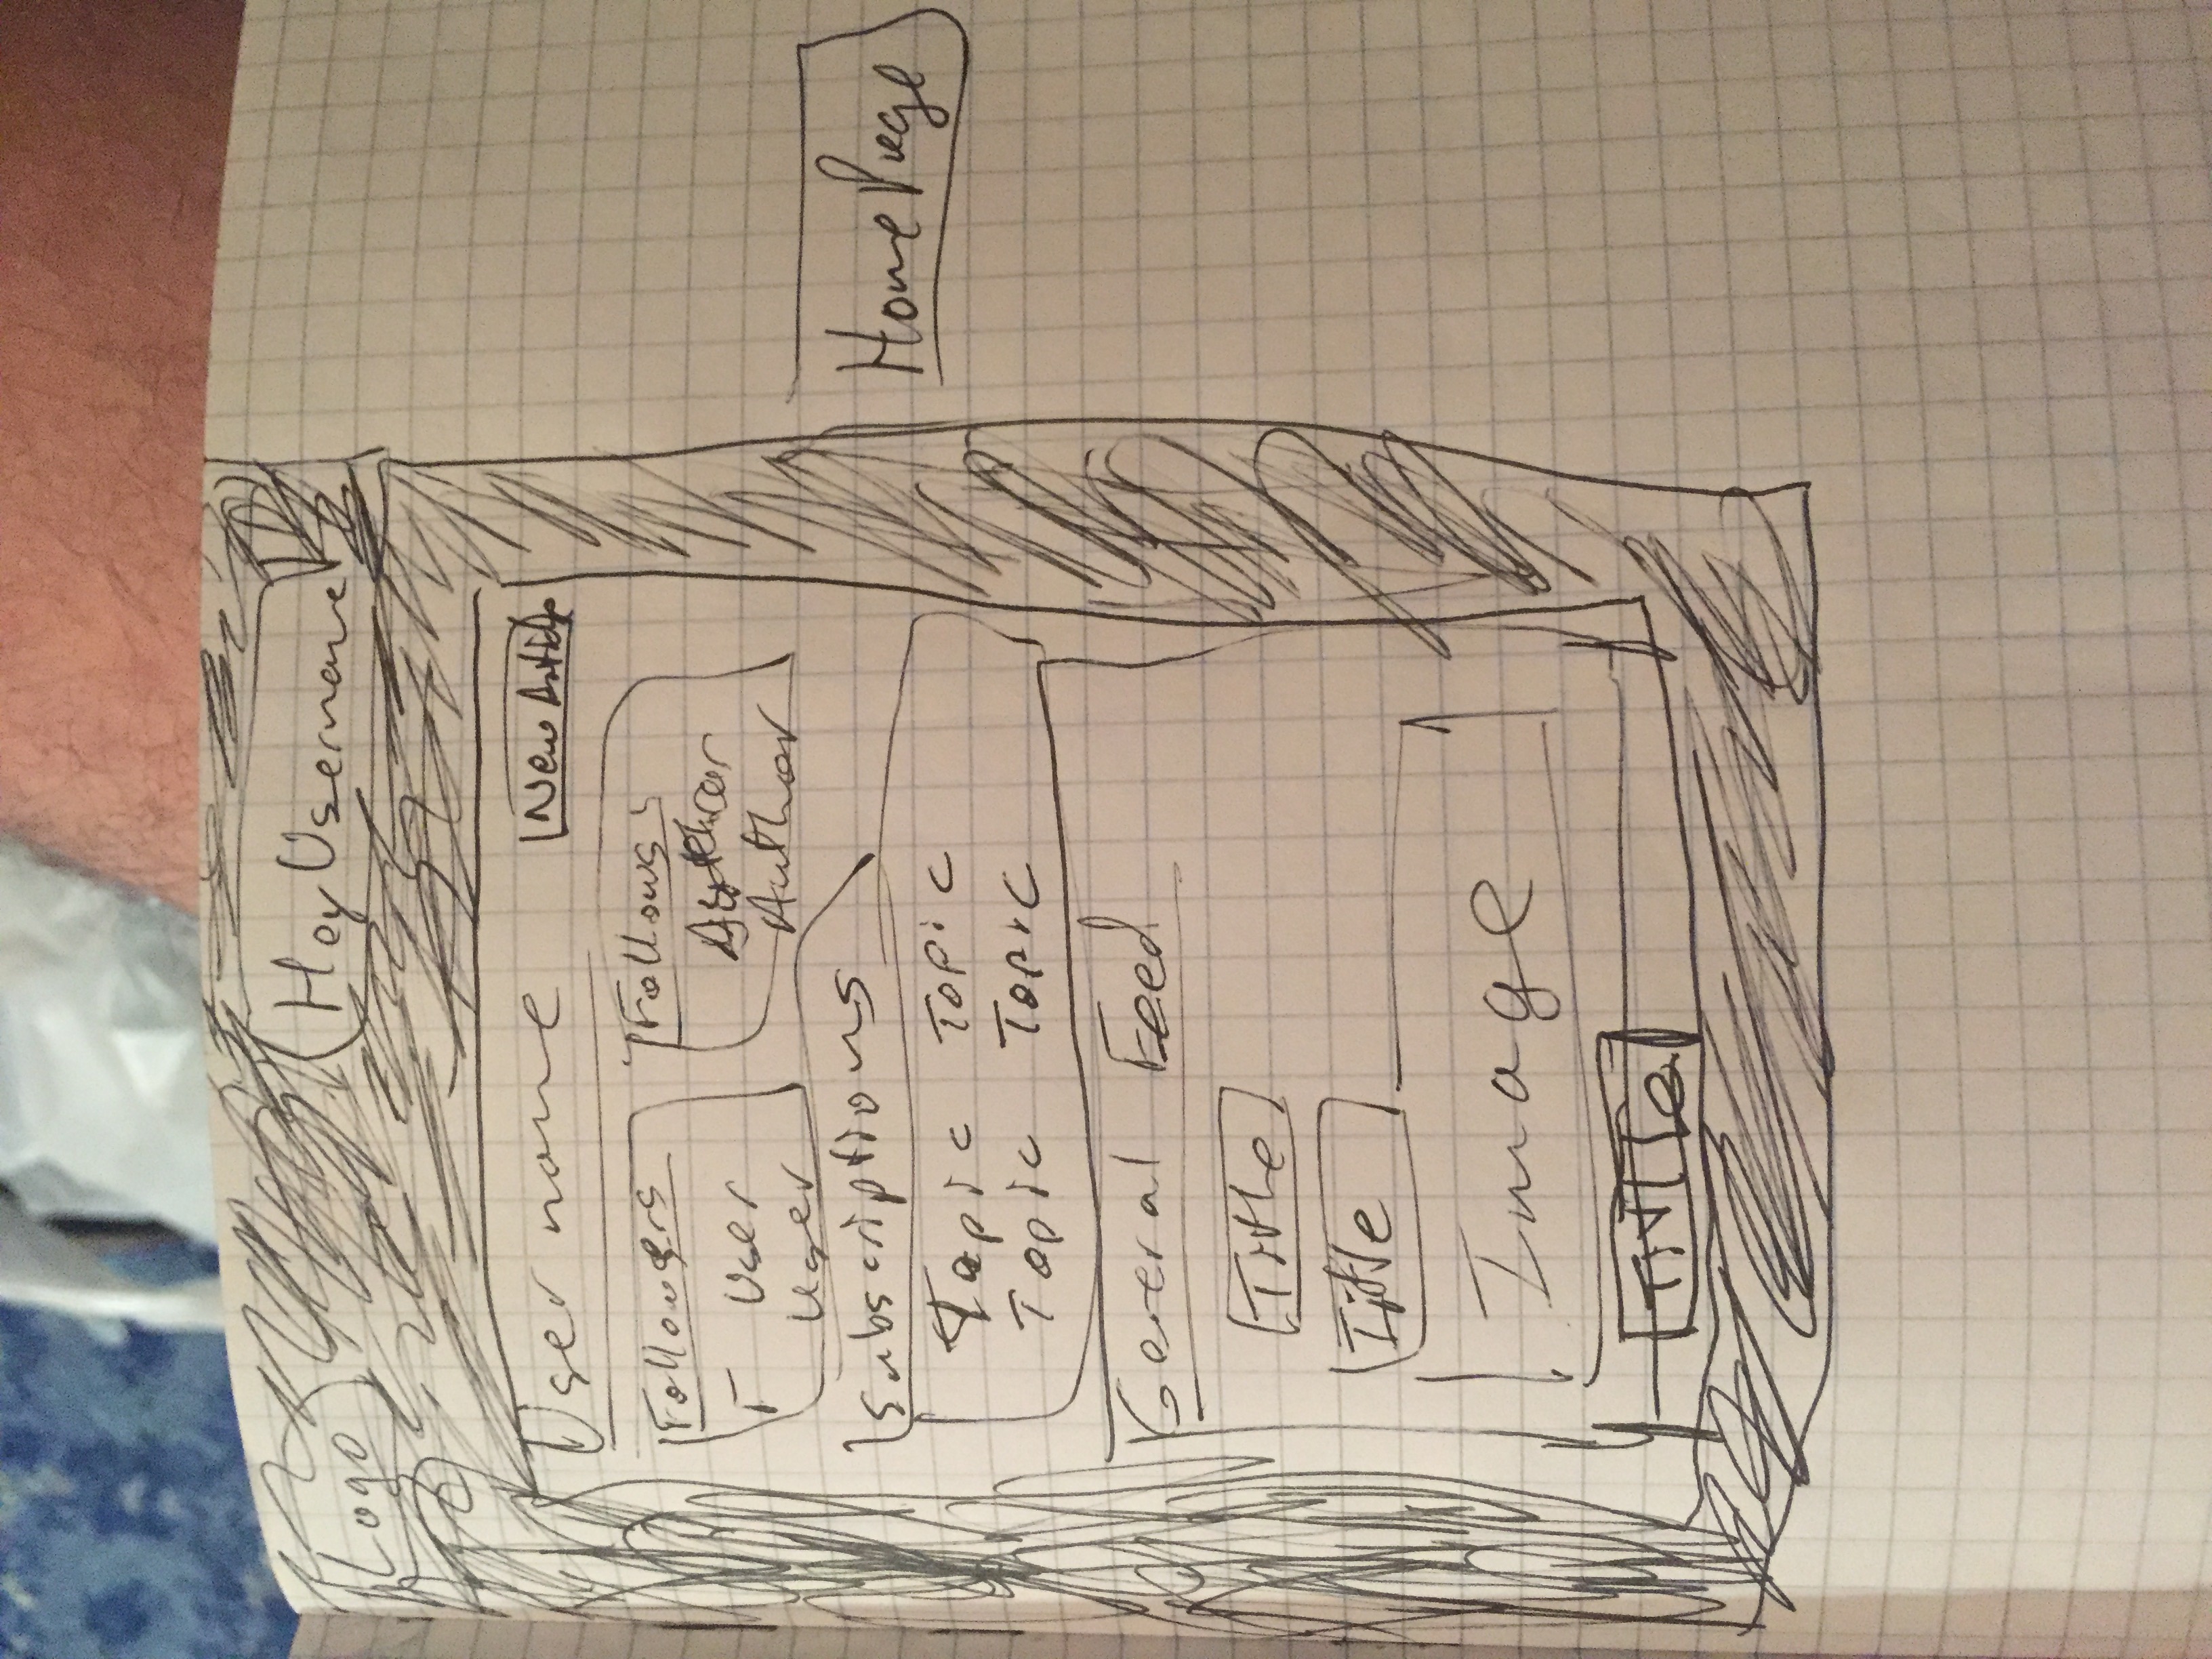 Logo
Hey Username
User name
New Article
Followers
Follows:
User
User
Author
Author
Subscriptions
Topic Topic
Topic Topic
General Feed
Title
Title
Image
Title
Home Page